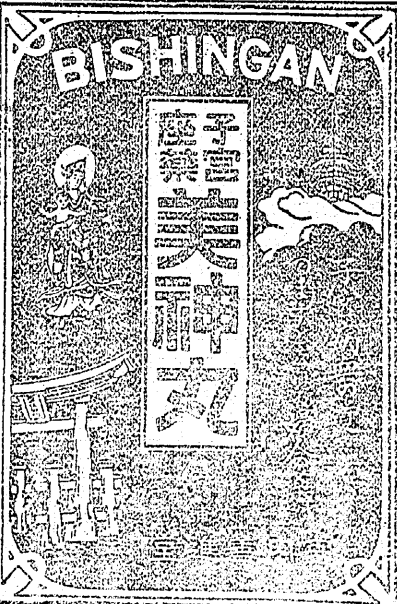 BISHINGAN
子宮
座薬
美神丸